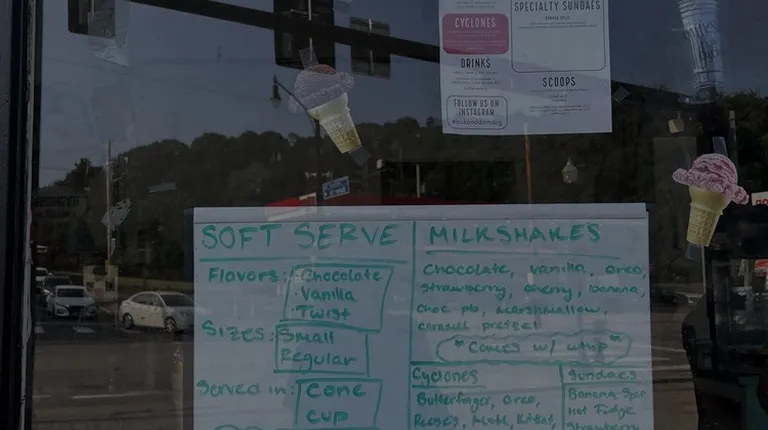 SPECIALTY SUNDAES
CYCLONES
DRINKS
SCOOPS
FOLLOW US ON
INSTAGRAM
SOFT SERVE
Flavors: Chocolate
Vanilla
Twist
Sizes: Small
Regular
Served in: Cone
Cup
MILKSHAKES
Chocolate, vanilla, oreo,
strawberry, cherry, banana,
choc pb, marshmallow,
caramel pretzel
*Comes w/ whip*
Cyclones
Butterfinger, Oreo,
Reese's, M&M, Kitkat,
Sundaes
Banana Split
Hot Fudge
Strawberry